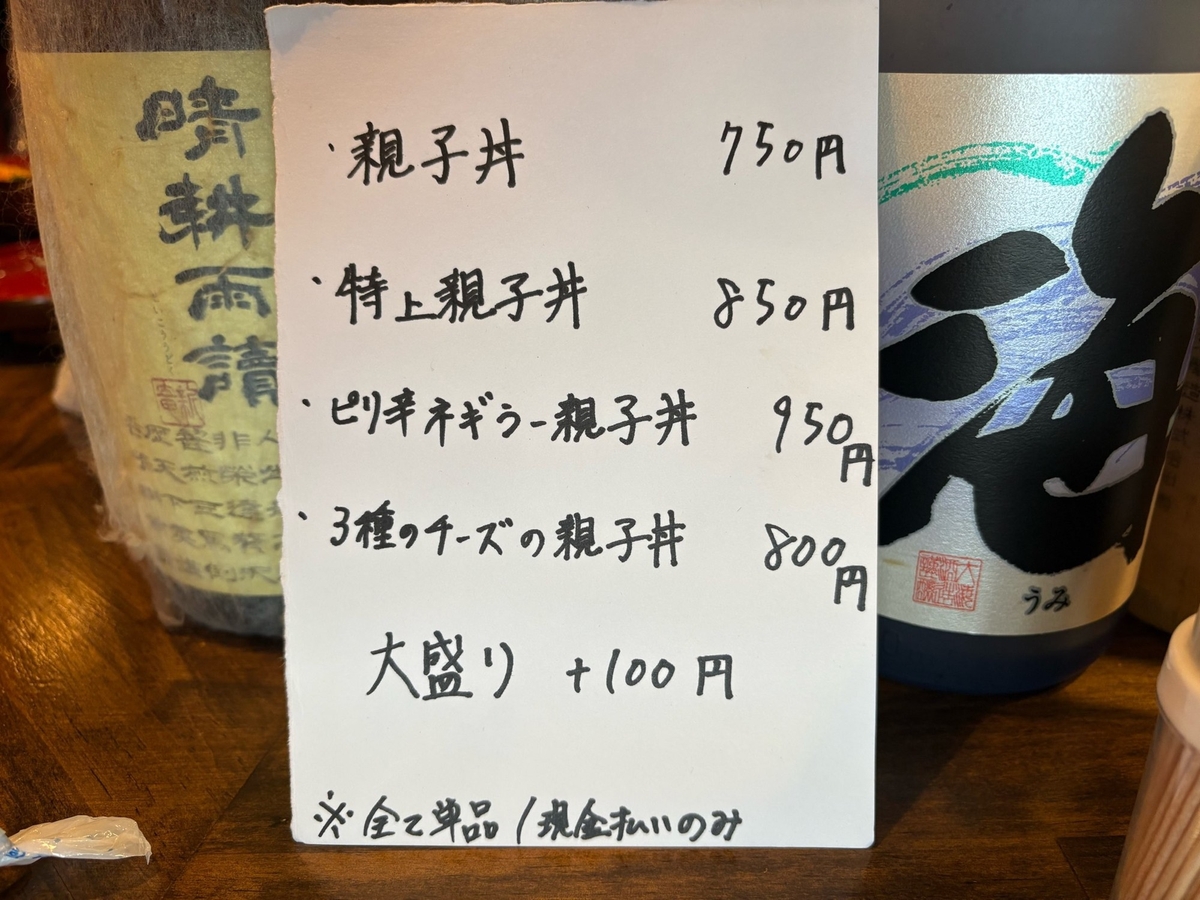 ・親子丼 750円
・特上親子丼 850円
・ピリ辛ネギラー親子丼 950円
・3種のチーズの親子丼 800円
大盛り +100円
※全て単品/現金払いのみ
晴耕雨讀
海
うみ